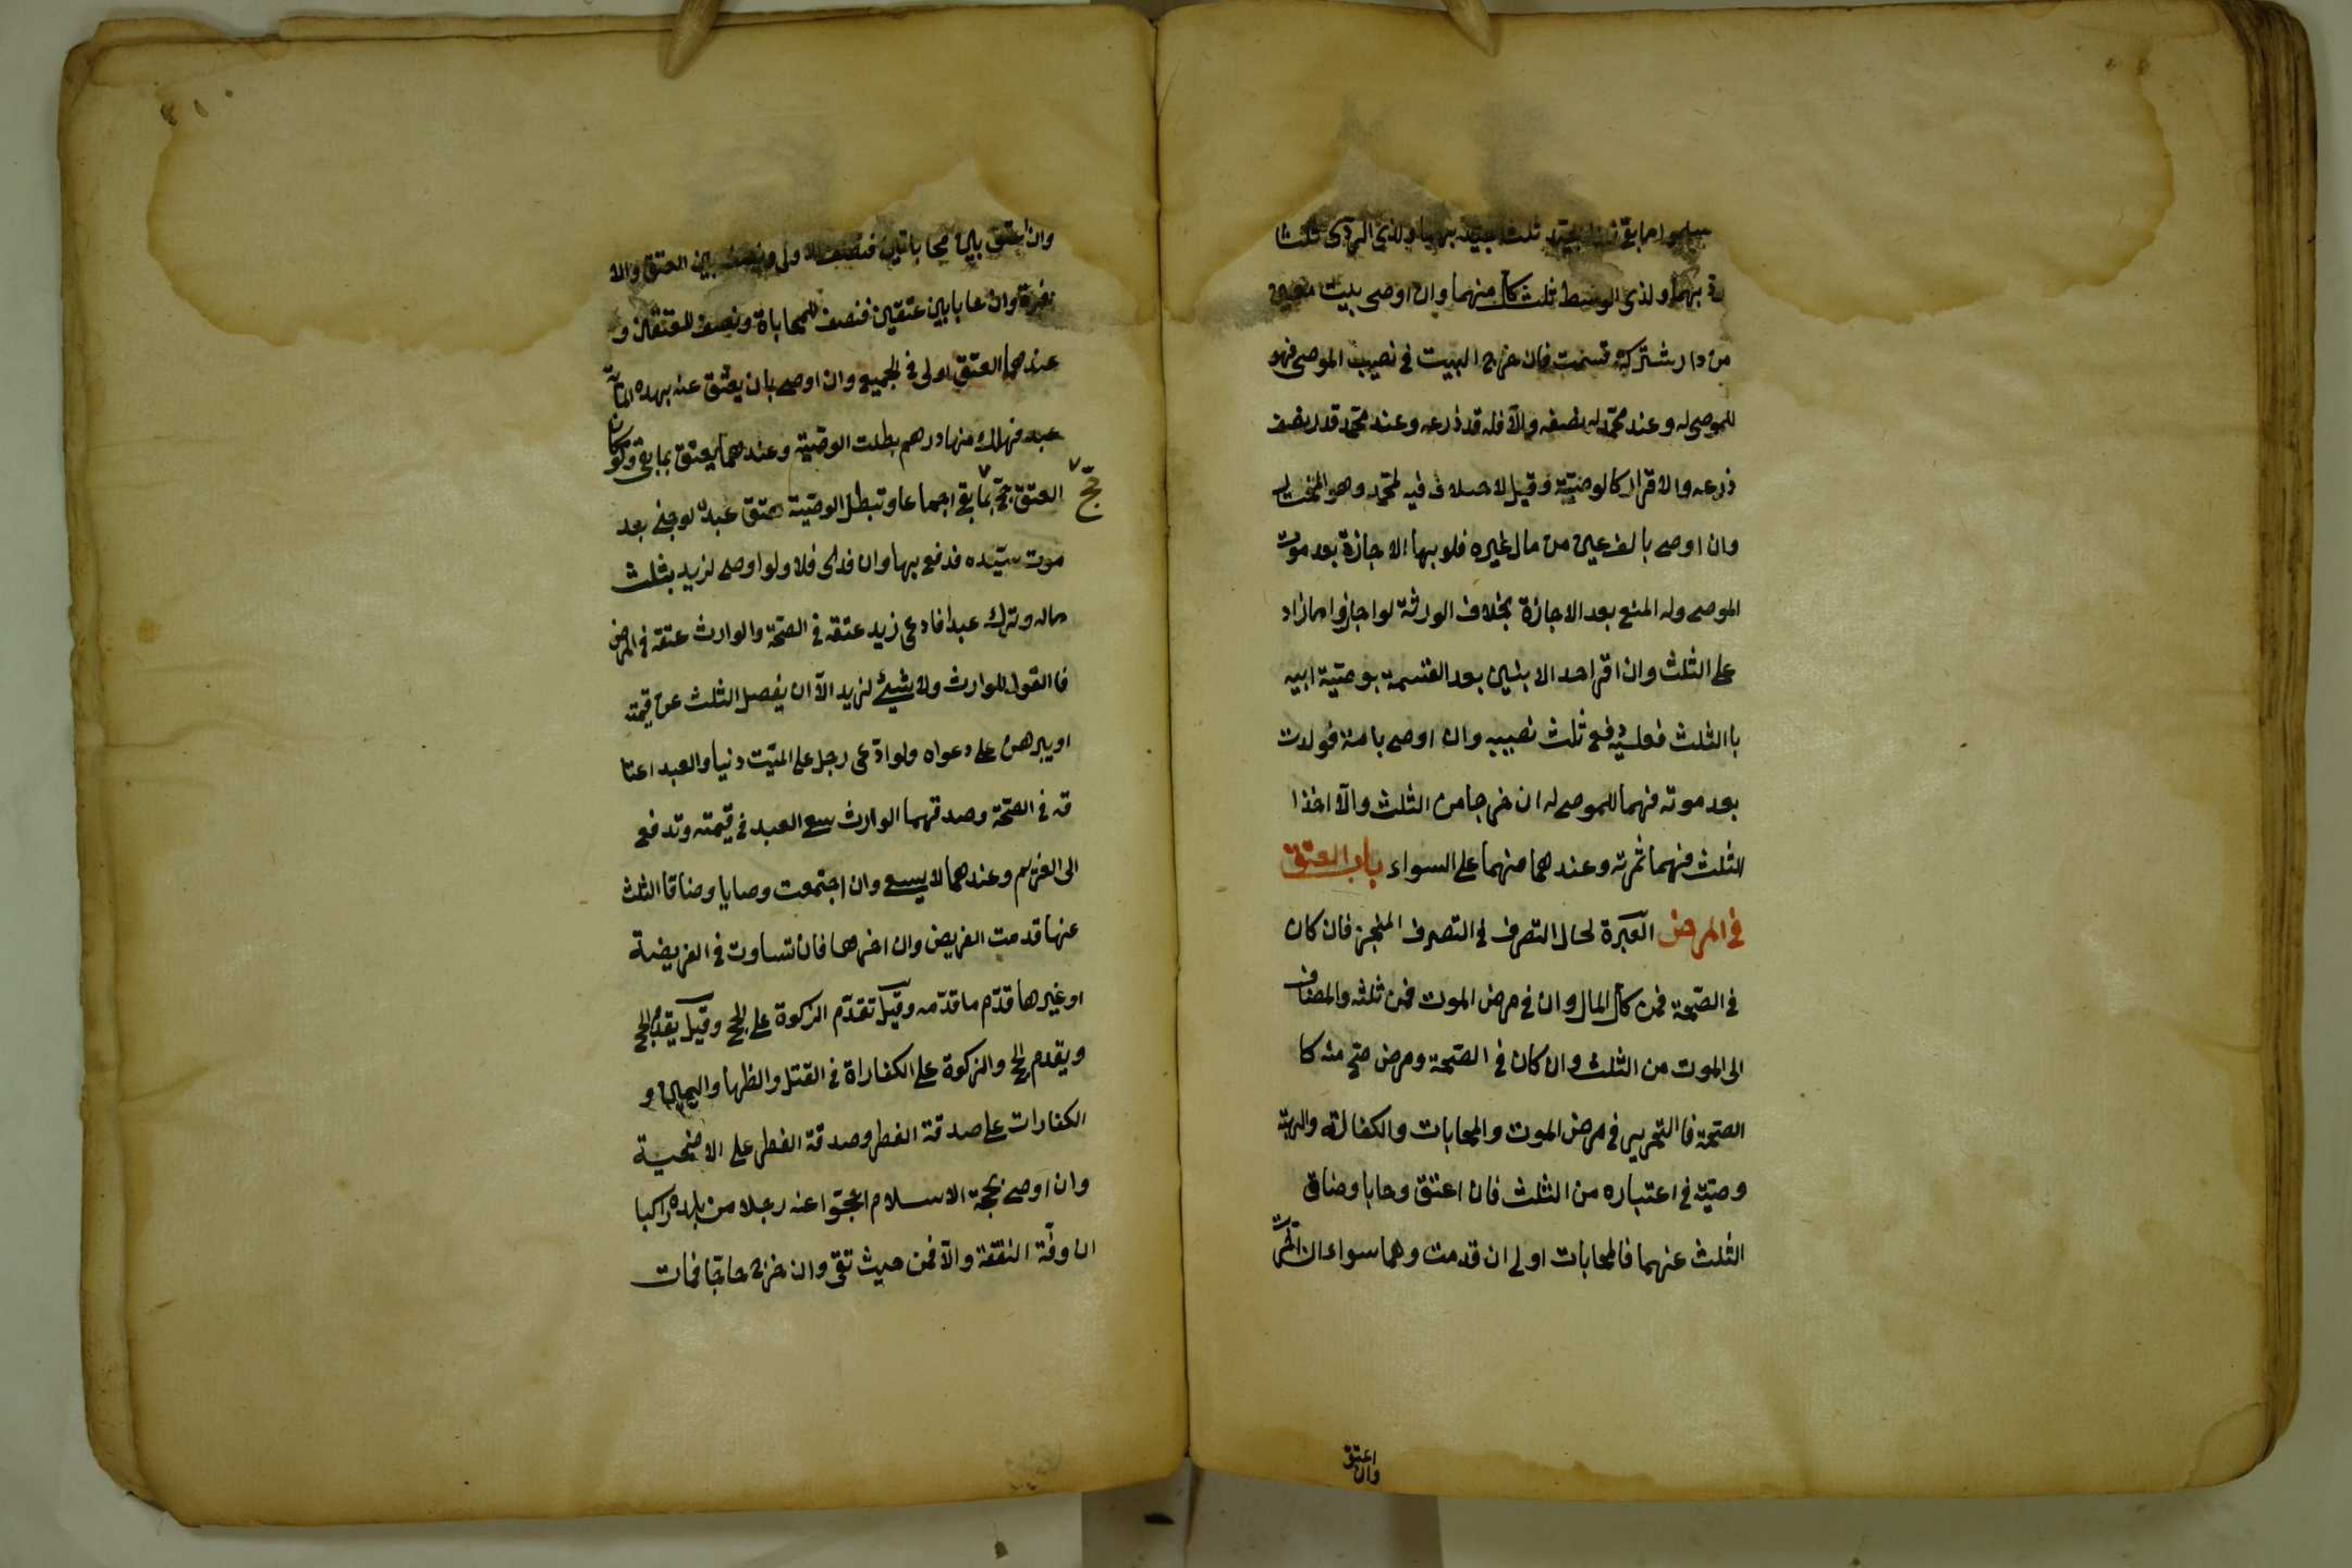 سلموا ما بقى فلذى الجيد ثلث الجيد بهما ولذى الردى ثلثا
بهما ولذى الوسط ثلث كل منهما وان اوصى ببيت معين
من دار مشتركة قسمت فان خرج البيت فى نصيب الموصى فهو
للموصى له وعند محمد له نصفه والا فله قدر ذرعه وعند محمد قدر نصف
ذرعه والاقرار كالوصية وقيل لا خلاف فيه لمحمد وهو المختار
وان اوصى بالف عين من مال غيره فلربها الاجازة بعد موت
الموصى وله المنع بعد الاجازة بخلاف الورثة لو اجازوا ما زاد
على الثلث وان اقر احد الابنين بعد القسمة بوصية ابيه
باالثلث فعليه دفع ثلث نصيبه وان اوصى بامة فولدت
بعد موته فهما للموصى له ان خرجا من الثلث والا اخذا
الثلث منهما ثم منه وعندهما منهما على السواء باب العتق
فى المرض العبرة لحال التصرف فى التصرف المنجز فان كان
فى الصحة فمن كل المال وان فى مرض الموت فمن ثلثه والمضاف
الى الموت من الثلث وان كان فى الصحة ومرض صح منه كا
الصحة فاالتحرير فى مرض الموت والمحابات والكفالة والهبة
وصية فى اعتباره من الثلث فان اعتق وحابا وضاق
الثلث عنهما فالمحابات اولى ان قدمت وهما سواء ان اخرت
وان اعتق
وان اعتق بين محاباتين فنصف للاولى ونصف بين العتق والا
خيرة وان حابا بين عتقين فنصف للمحاباة ونصف للعتقين و
عندهما العتق اولى فى الجميع وان اوصى بان يعتق عنه بهذه المائة
عبد فهلك منها درهم بطلت الوصية وعندهما يعتق بما بقى ولو كان
العتق حج بما بقى اجماعا وتبطل الوصية بعتق عبده لو جنى بعد
حج
موت سيده فدفع بها وان فدى فلا ولو اوصى لزيد بثلث
ماله وترك عبدا فادعى زيد عتقه فى الصحة والوارث عتقه فى المرض
فاالقول للوارث ولا شئ لزيد الا ان يفضل الثلث عن قيمته
او يبرهن على دعواه ولو ادعى رجل على الميت دينا والعبد اعتا
قه فى الصحة وصدقهما الوارث سعى العبد فى قيمته وتدفع
الى الغريم وعندهما لا يسعى وان اجتمعت وصايا وضاقا الثلث
عنها قدمت الفريض وان اخرها فان تساوت فى الفريضة
او غيرها قدم ما قدمه وقيل تقدم الزكوة على الحج وقيل يقدم الحج
ويقدم الحج والزكوة على الكفاراة فى القتل والظها واليمين و
الكفارات على صدقة الفطر وصدقة الفطر على الاضحية
وان اوصى بحجة الاسلام احجوا عنه رجلا من بلده راكبا
ان وفت النفقة والا فمن حيث تفى وان خرج حاجا فمات